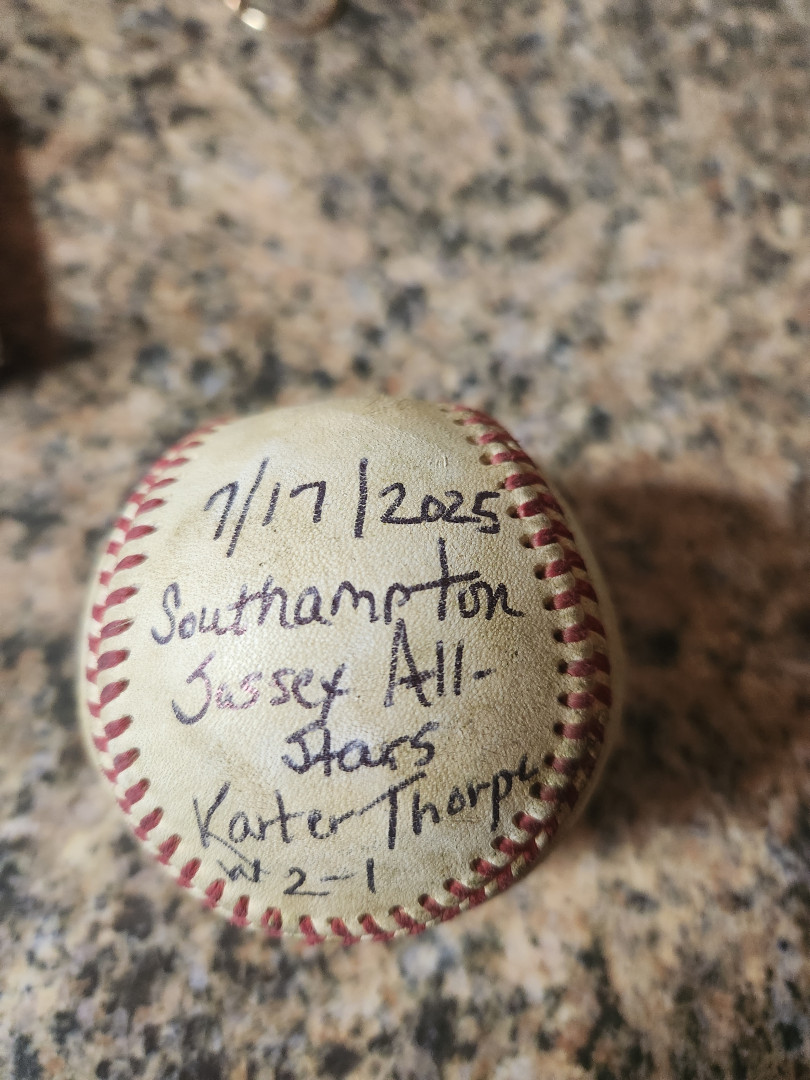 7/17/2025
Southampton
Sussex All-
Stars
Karter Thorpe
W 2-1